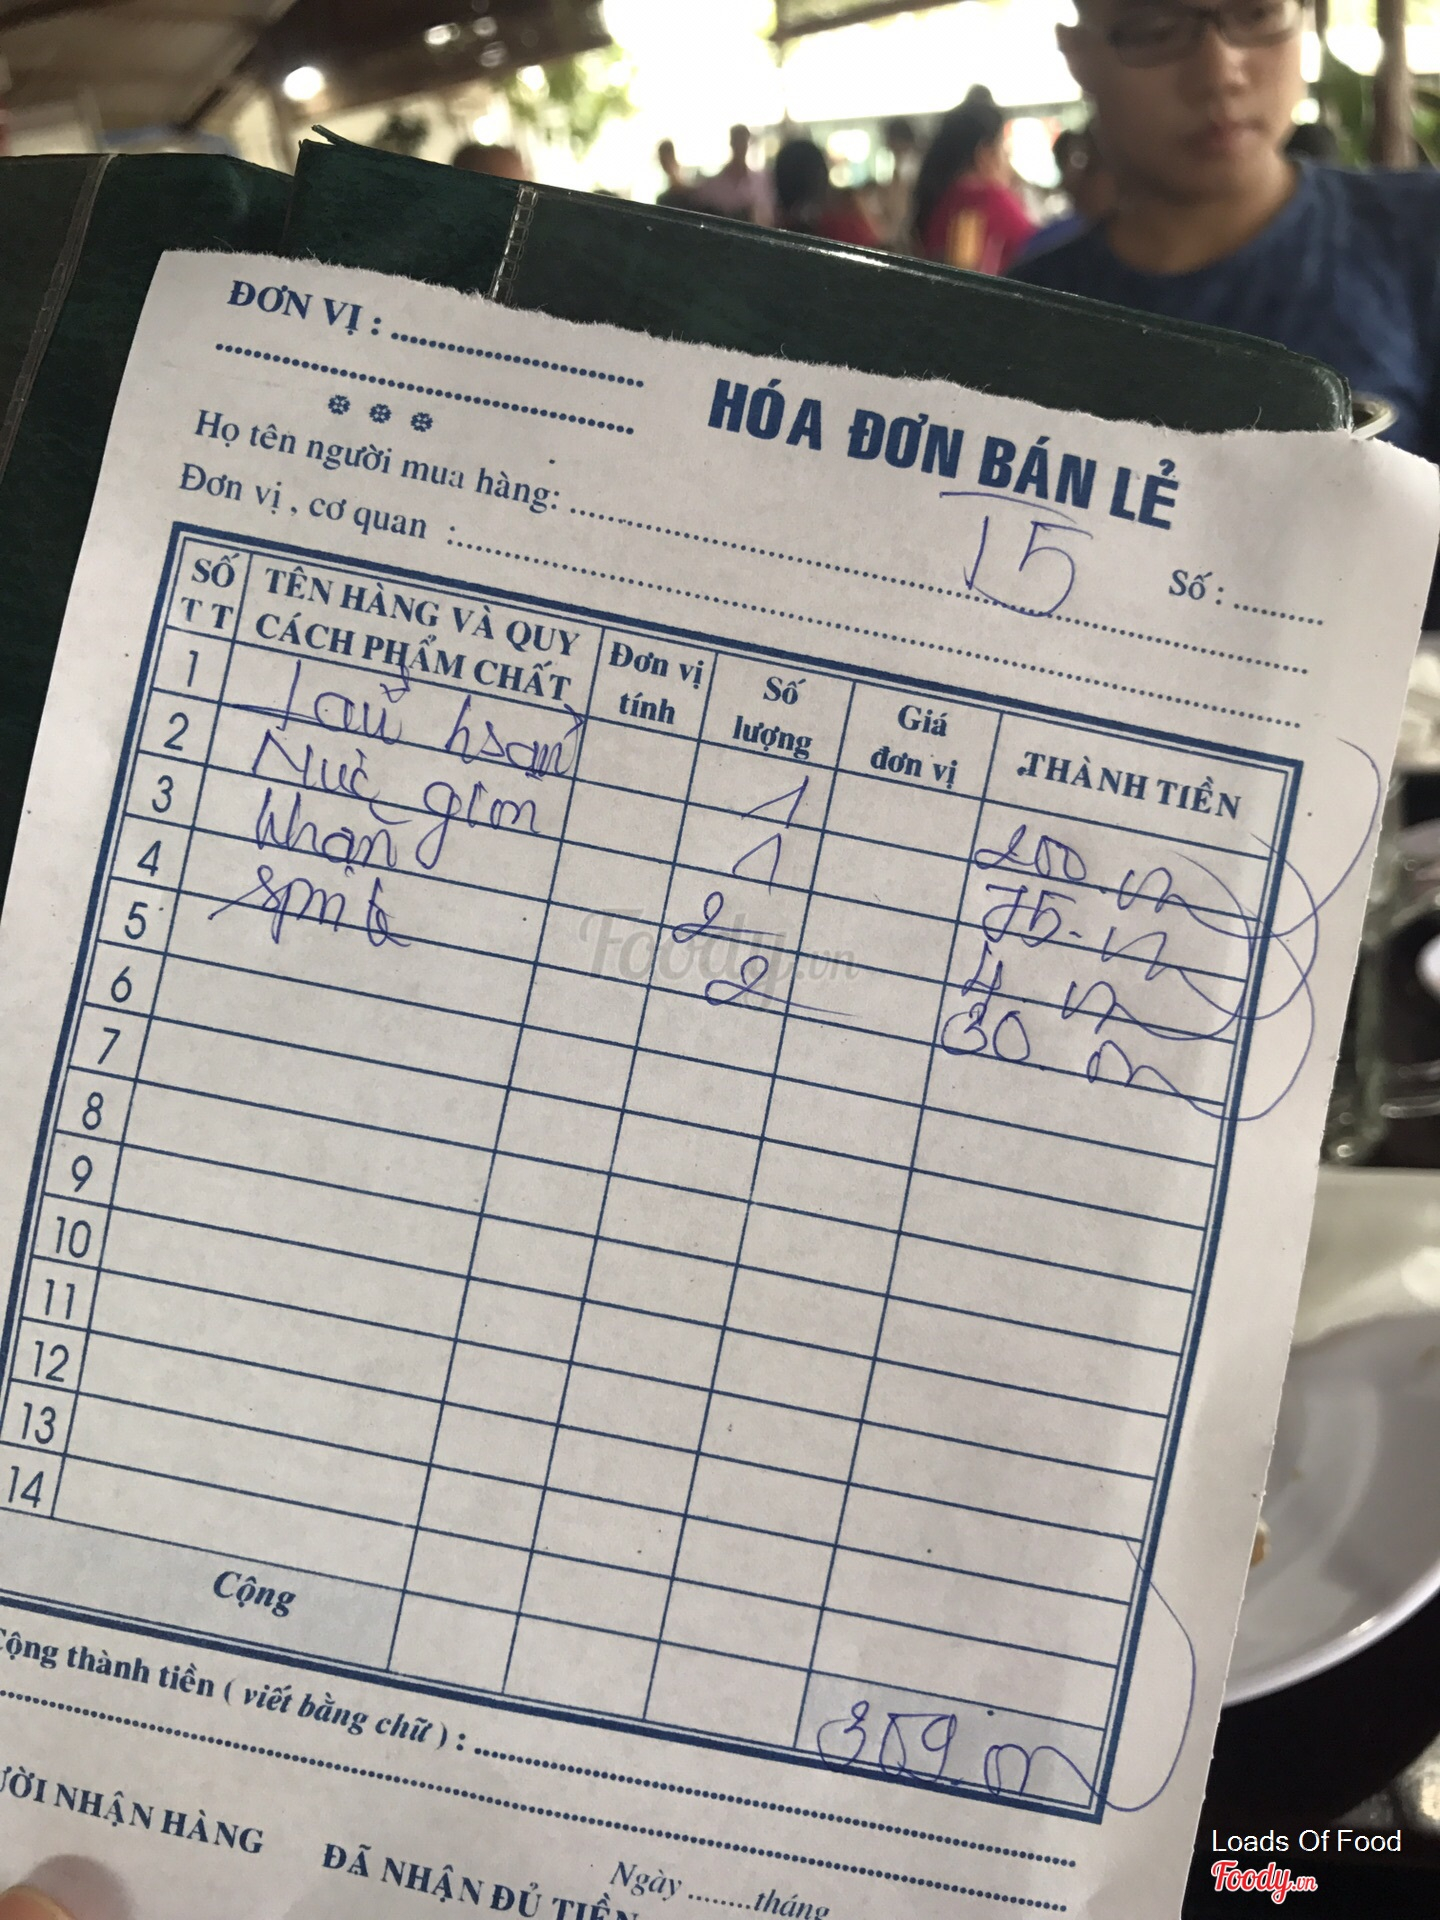 ĐƠN VỊ : ....................
..............................
Họ tên người mua hàng: ....................
HÓA ĐƠN BÁN LẺ
15
Số : ..........
Đơn vị , cơ quan : ....................
SỐ TT TÊN HÀNG VÀ QUY CÁCH PHẨM CHẤT Đơn vị tính Số lượng Giá đơn vị THÀNH TIỀN
1 Lẩu 1 200
2 1 75
3 Khăn 2 4
4 2 30
5
6
7
8
9
10
11
12
13
14
Cộng 309
Cộng thành tiền ( viết bằng chữ ) : ....................
NHẬN HÀNG ĐÃ NHẬN ĐỦ TIỀN Ngày ........tháng
Foody.vn
Loads Of Food
Foody.vn